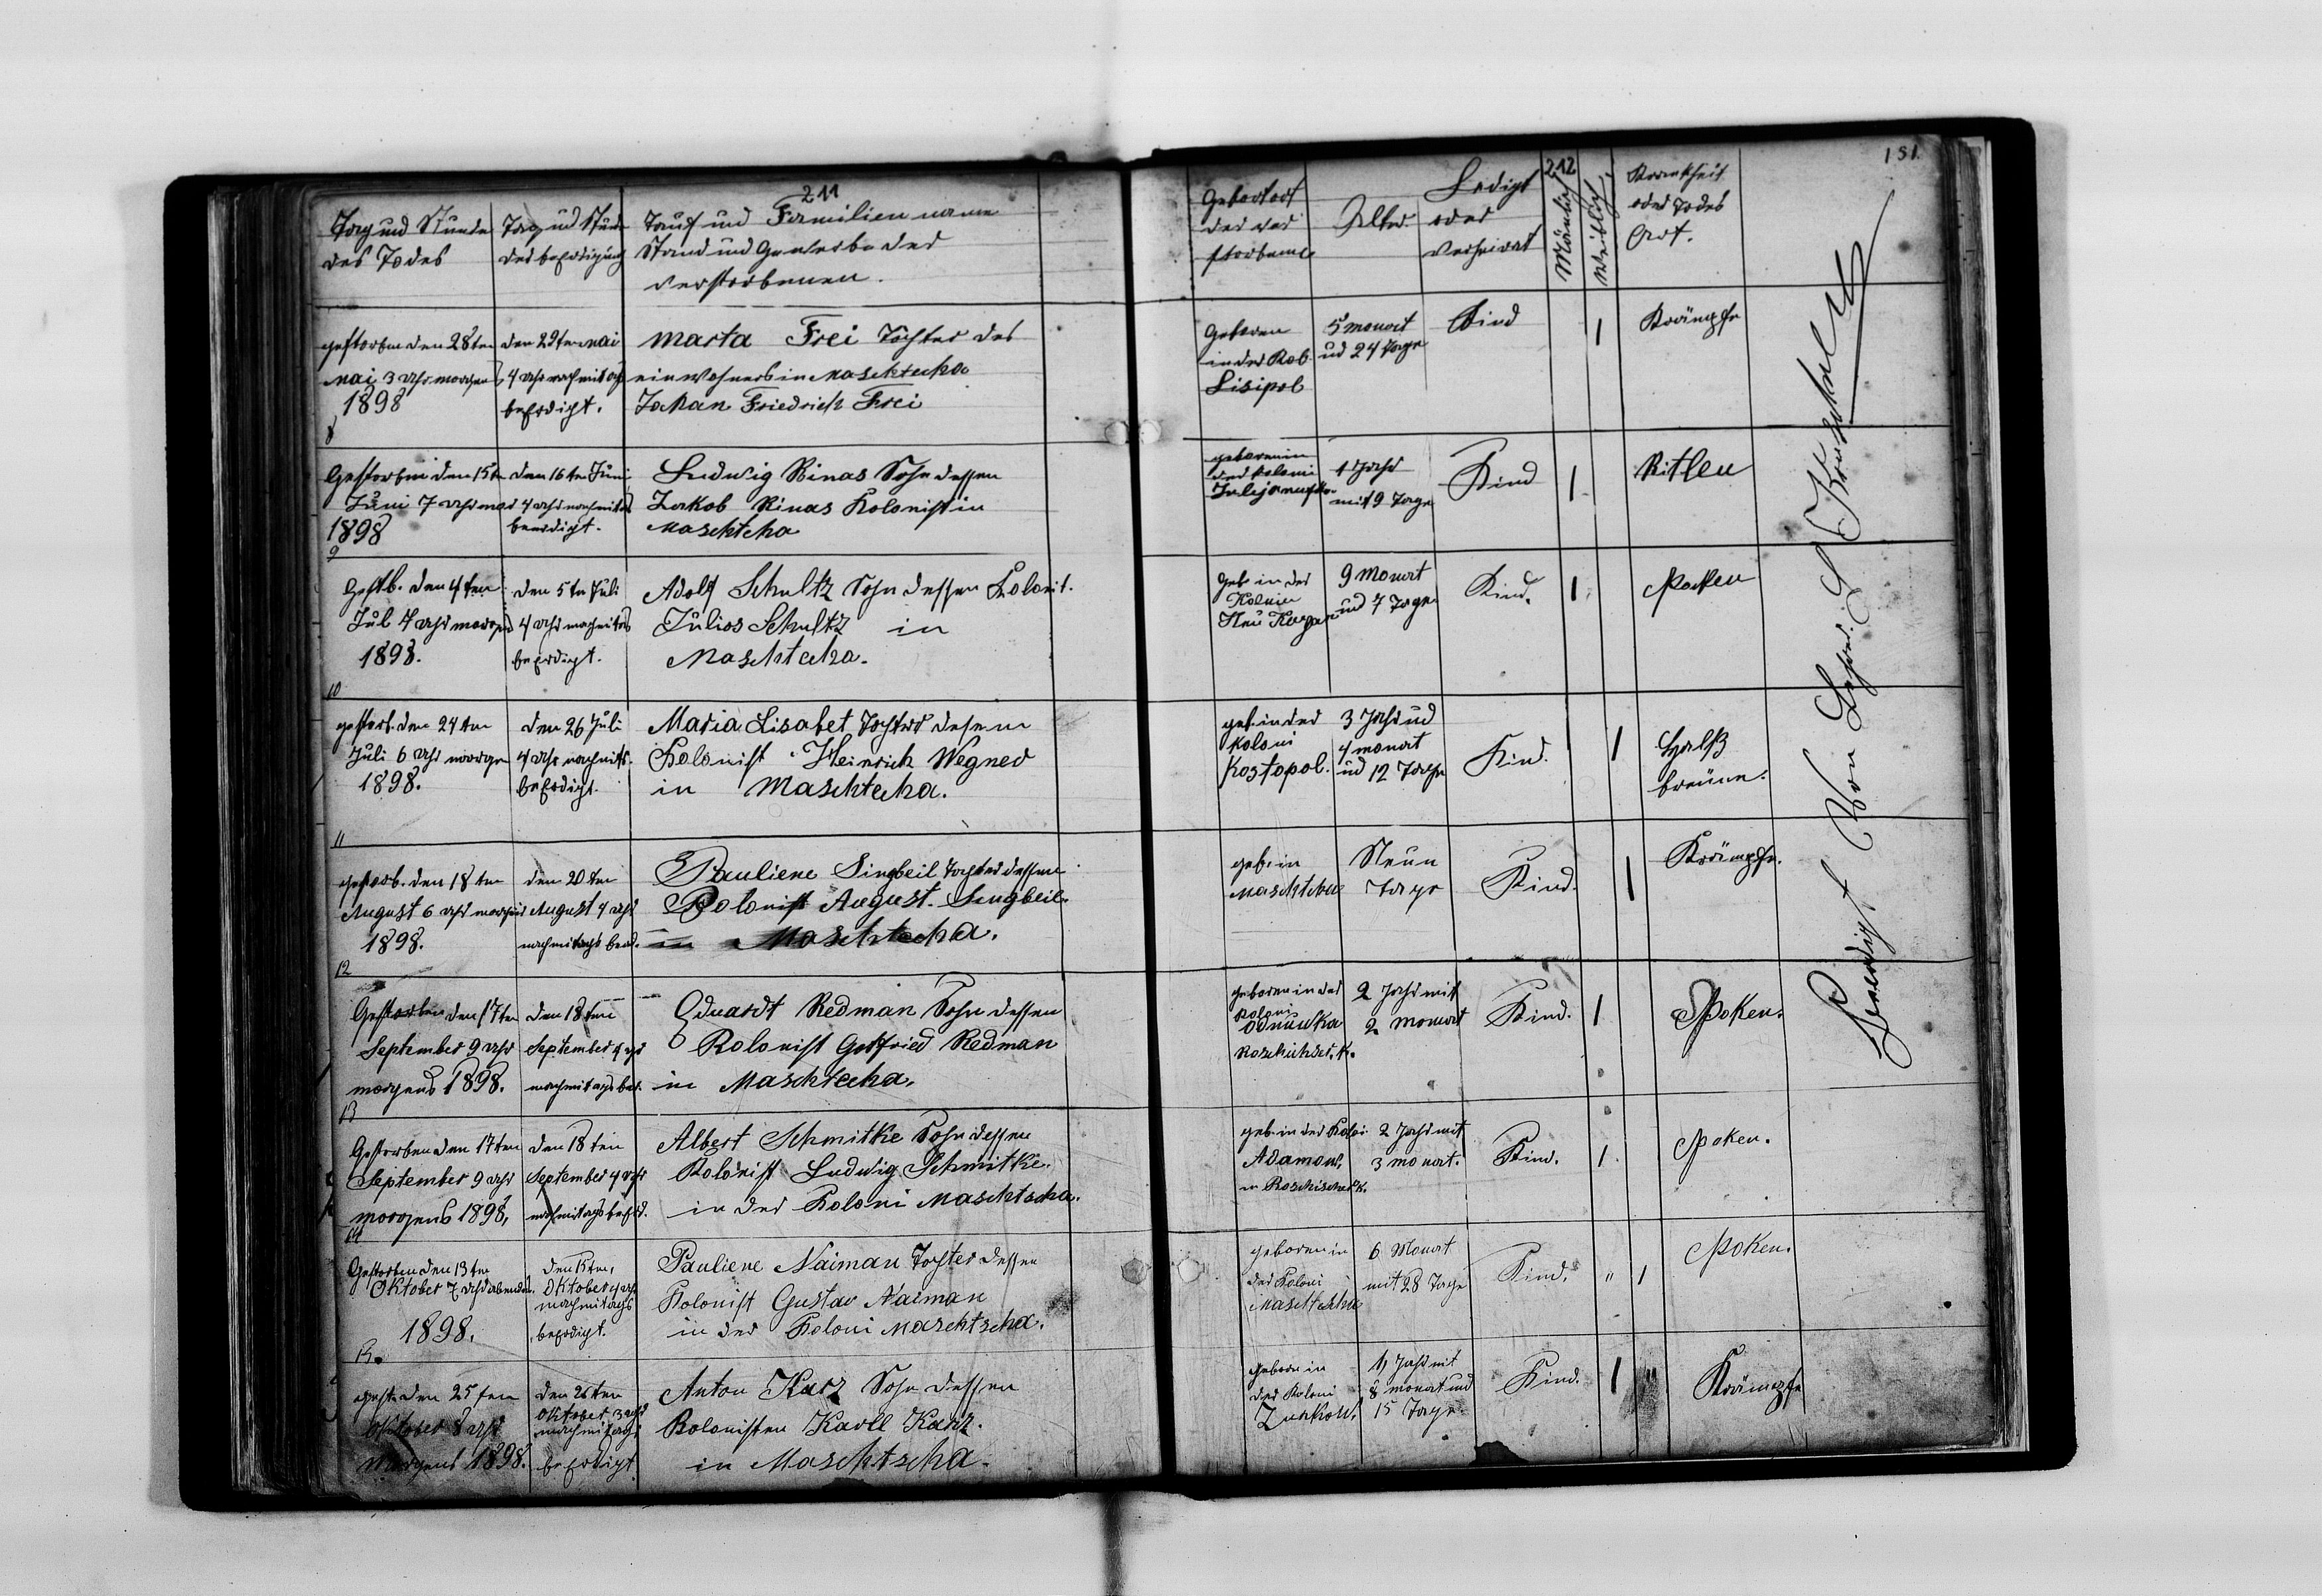 211
Tag und Stunde
des Todes
Tag ud Stunde
des beerdigung
Tauf und Familien name
Stand und Gewerbe der
verstorbenen.
gestorben den 28ten
Mai 3 Uhr morgens
1898
den 29ten Mai
4 Uhr nachmitag
beErdigt.
Marta Frei Tochter des
einwohners in Maschtscha
Johan Friedrich Frei
8
Gestorben den 15ten
Juni 7 Uhr
1898
den 16ten Juni
4 Uhr nachmitag
beerdigt.
Ludwig Rinas Sohn dessen
Jakob Rinas Kolonist in
Maschtcha
9
Gestb. den 4ten
Jul 7 Uhr morgens
1898.
den 5ten Juli
4 Uhr nachmitag
beErdigt.
Adolf Schultz Sohn dessen Kolonit.
Julios Schultz in
Maschtscha.
10
gestorb. den 24ten
Juli 6 Uhr morge
1898.
den 26 Juli
4 Uhr nachmit.
beErdigt.
Maria Lisabet Tochter desenn
Kolonist Heinrich Wegner
in Maschtscha.
11
gestorb. den 18ten
August 6 Uhr morgens
1898.
den 20ten
August 4 Uhr
nachmitags beerd.
Pauliene Singbeil Tochter dessen
Kolonist August Singbeil
in Maschtscha.
12
Gestorben den 17ten
September 9 Uhr
morgens 1898.
den 18ten
September 4 Uhr
nachmitags be.
Eduardt Redman Sohn dessen
Kolonist Gotfried Redman
in Maschtscha.
13
Gestorben den 17ten
September 9 Uhr
morgens 1898,
den 18ten
September 4 Uhr
nachmitags beErd.
Albert Schmitke Sohn dessen
Kolonist Ludwig Schmitke.
in der Koloni Maschtscha.
14
Gestorben den 13ten
Oktober 7 Uhr abends.
1898.
Oktober 4 Uhr
nachmitags
beErdigt.
Pauliene Naiman Tochter dessen
Kolonist Gustav Naiman
in der Koloni Maschtscha.
15.
gest. den 25ten
Oktober 8 Uhr
Morgens 1898.
den 26ten
Oktober 3 Uhr
nachmitags
beErdigt
Anton Karz Sohn dessen
Kolonisten Karll Karz.
in Maschtscha.
212
151
Gebortort
der ver
storbene
Alter.
Ledig
oder
verheirat
Mänlich
Weiblich
Krankheit
oder Todes
Art.
Geboren
in der Kol.
Lisipol
5 monat
ud 24 Tage
Kind
1
Krämpfe
geboren in
der Koloni
1 Jahr
mit 9 Tage
Kind
1
Ritlen
Geb. in der
Kolonie
Neu
9 Monat
und 7 Tage
Kind.
1
Pocken
geb. in der
Koloni
Kostopol.
3 Jahr ud
4 monat
ud 12 Tage
Kind.
1
Halß
breüne.
geb. in
Maschtscha
Neun
Tage
Kind.
1
Krämpfe.
geboren in der
Koloni
2 Jahr mit
2 Monat
Kind.
1
Poken.
geb. in der Koloni
Adamow,
in Roschischer K.
2 Jahr mit
3 monat.
Kind.
1
Poken.
geboren in
der Koloni
Maschtscha
6 Monat
mit 28 Tage
Kind.
" 1
Poken.
Geboren in
der Koloni
1 Jahr mit
8 monat und
15 Tage.
Kind.
1 "
Krämpfe
Beerdigt Von Lehrer.